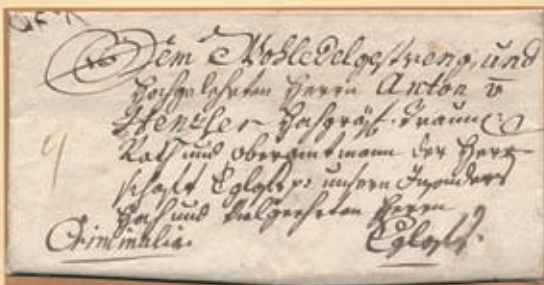 Dem Wohledelgestreng, und
Hochgelehrten Herrn Anton v
Hentzler Hochgräf. Traun.
Rath und Oberamtmann der Herr-
schaft Eglofs p: unsern Insonders
Hoch und Vielgeehrten Herrn
Criminalia. Eglofs.